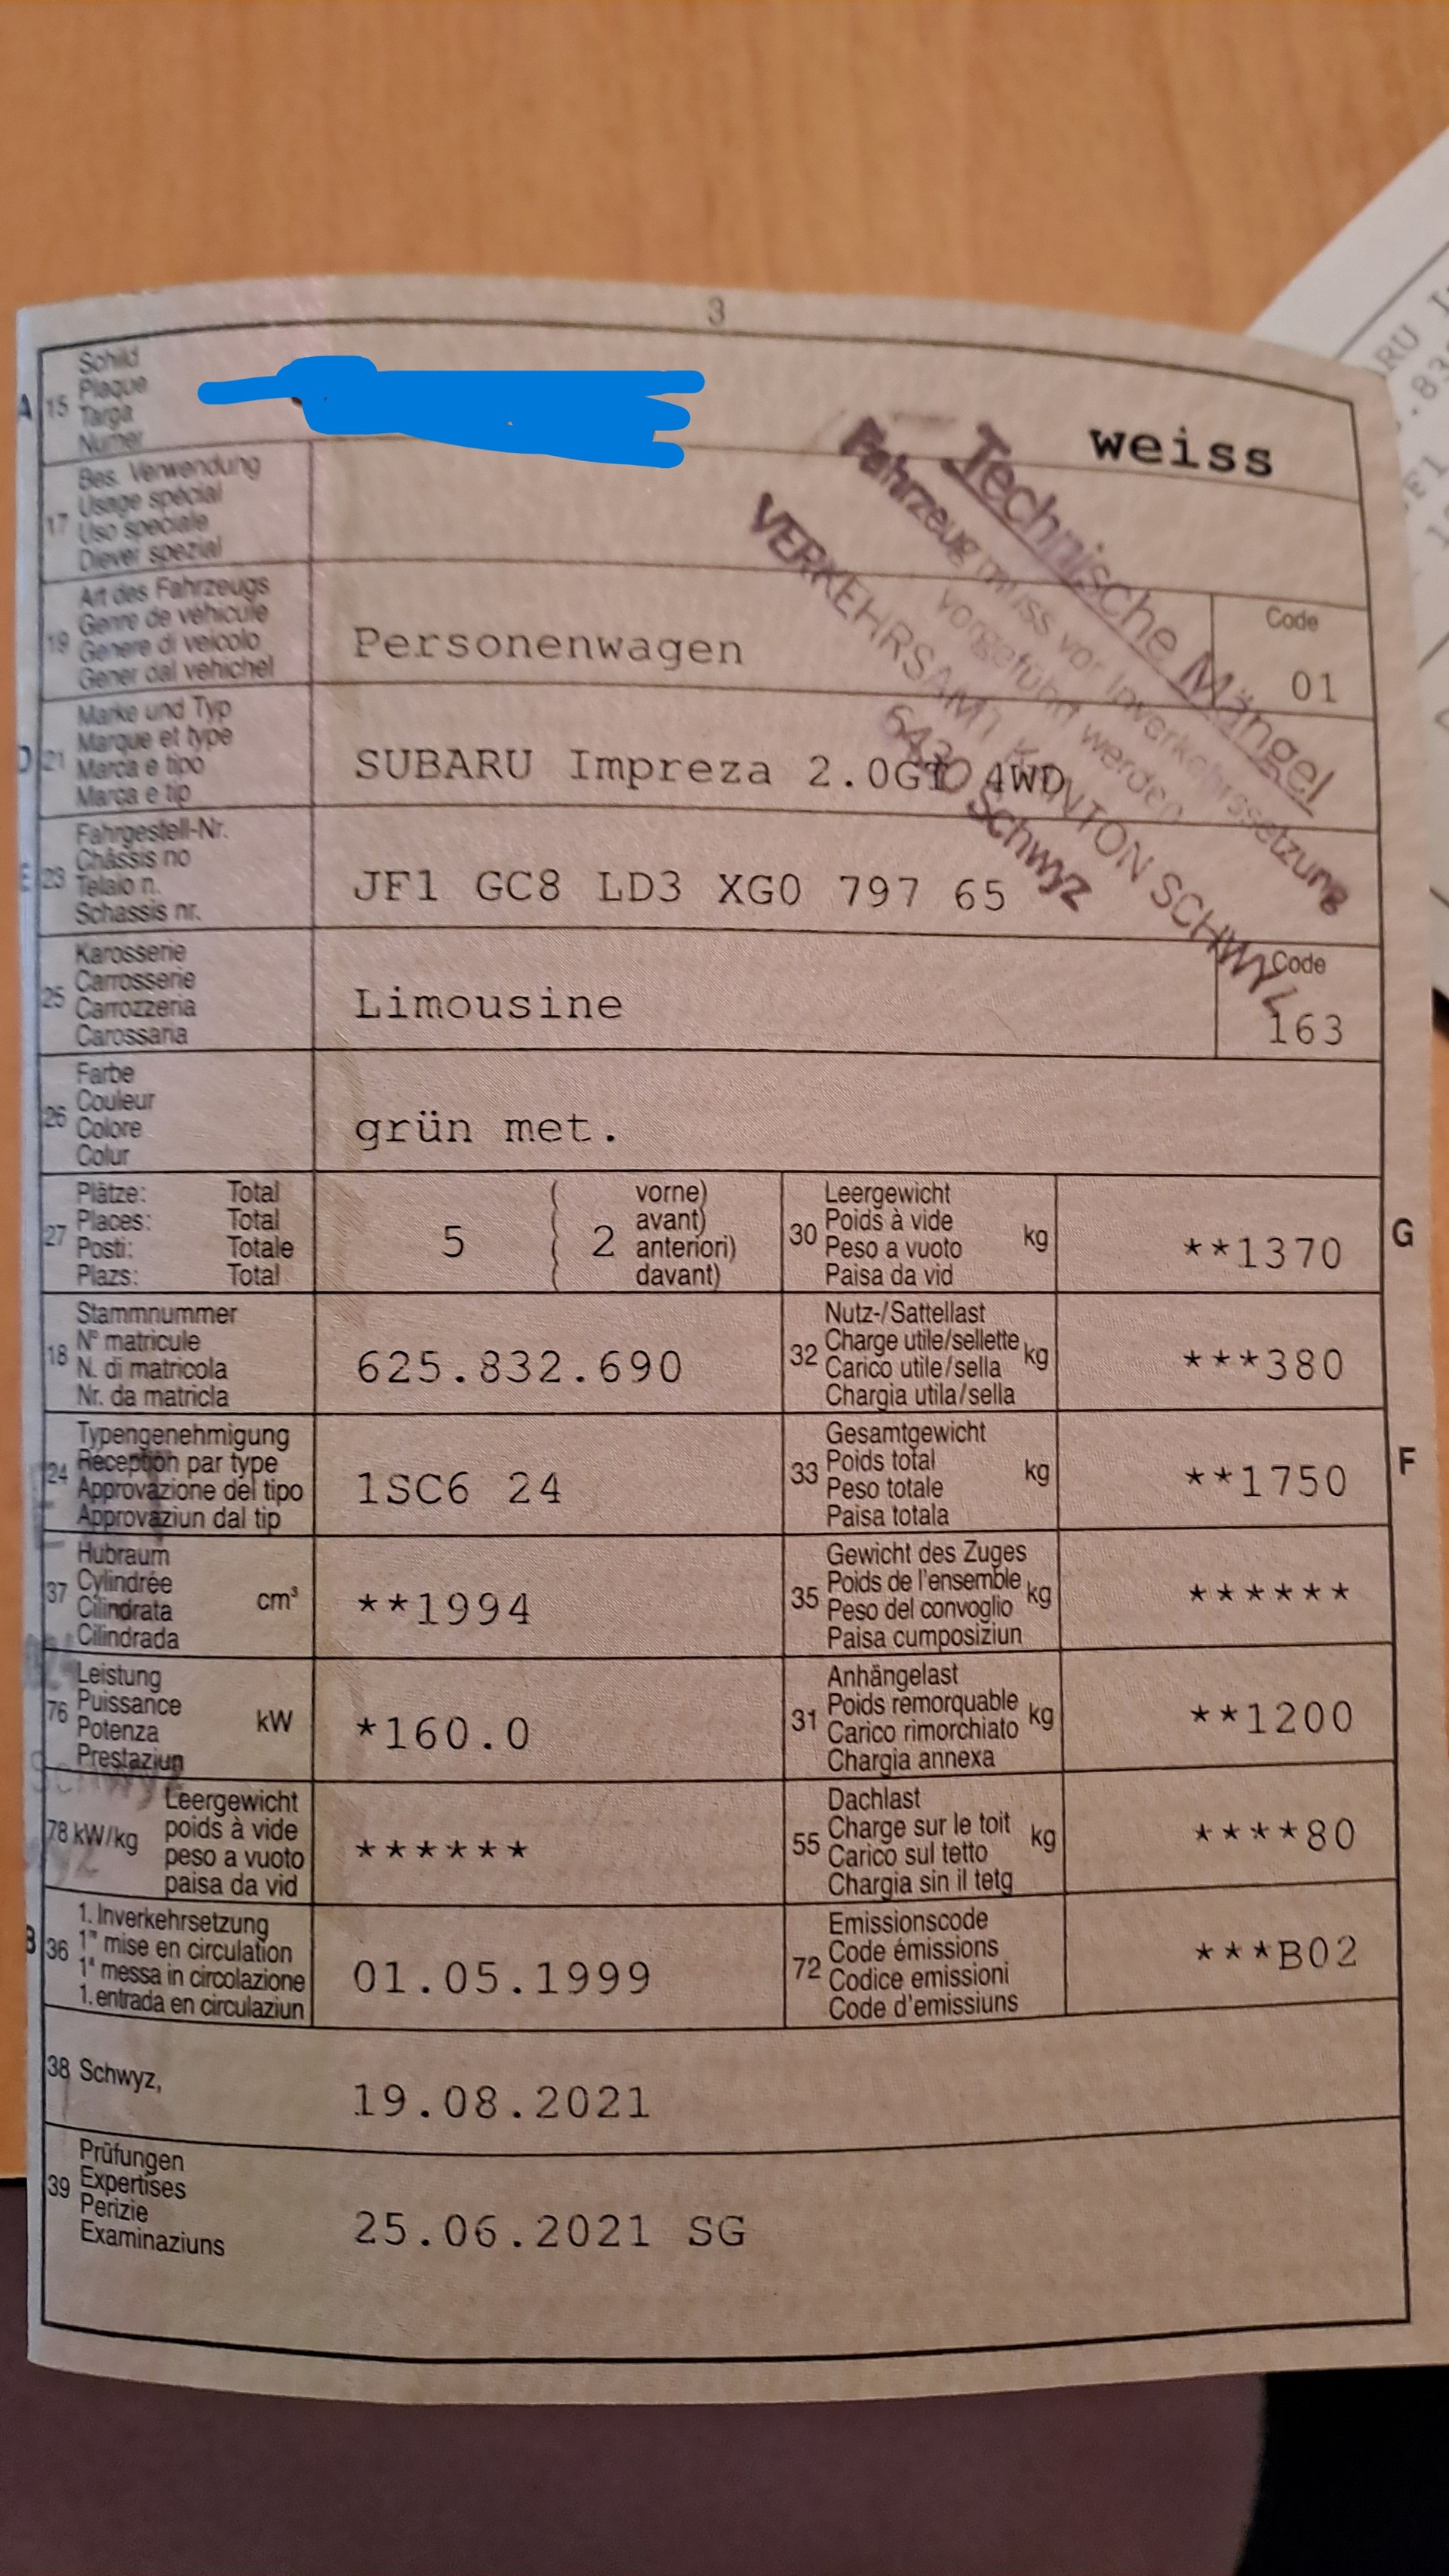 3
A 15 Schild
Plaque
Targa
Numer
weiss
17 Bes. Verwendung
Usage spécial
Uso speciale
Diever spezial
Technische Mängel
Fahrzeug muss vor Inverkehrssetzung
vorgeführt werden
VERKEHRSAMT KANTON SCHWYZ
6430 Schwyz
19 Art des Fahrzeugs
Genre de véhicule
Genere di veicolo
Gener dal vehichel
Personenwagen
Code
01
D 21 Marke und Typ
Marque et type
Marca e tipo
Marca e tip
SUBARU Impreza 2.0GT 4WD
E 23 Fahrgestell-Nr.
Châssis no
Telaio n.
Schassis nr.
JF1 GC8 LD3 XG0 797 65
25 Karosserie
Carrosserie
Carrozzeria
Carossaria
Limousine
Code
163
26 Farbe
Couleur
Colore
Colur
grün met.
27 Plätze: Total
Places: Total
Posti: Totale
Plazs: Total
5 ( 2 vorne)
( avant)
( anteriori)
( davant)
30 Leergewicht
Poids à vide
Peso a vuoto
Paisa da vid
kg
**1370
G
18 Stammnummer
N° matricule
N. di matricola
Nr. da matricla
625.832.690
32 Nutz-/Sattellast
Charge utile/sellette
Carico utile/sella
Chargia utila/sella
kg
***380
24 Typengenehmigung
Réception par type
Approvazione del tipo
Approvaziun dal tip
1SC6 24
33 Gesamtgewicht
Poids total
Peso totale
Paisa totala
kg
**1750
F
37 Hubraum
Cylindrée
Cilindrata
Cilindrada
cm³
**1994
35 Gewicht des Zuges
Poids de l'ensemble
Peso del convoglio
Paisa cumposiziun
kg
******
76 Leistung
Puissance
Potenza
Prestaziun
kW
*160.0
31 Anhängelast
Poids remorquable
Carico rimorchiato
Chargia annexa
kg
**1200
78 kW/kg
Leergewicht
poids à vide
peso a vuoto
paisa da vid
******
55 Dachlast
Charge sur le toit
Carico sul tetto
Chargia sin il tetg
kg
****80
B 36 1. Inverkehrsetzung
1re mise en circulation
1a messa in circolazione
1. entrada en circulaziun
01.05.1999
72 Emissionscode
Code émissions
Codice emissioni
Code d'emissiuns
***B02
38 Schwyz,
19.08.2021
39 Prüfungen
Expertises
Perizie
Examinaziuns
25.06.2021 SG